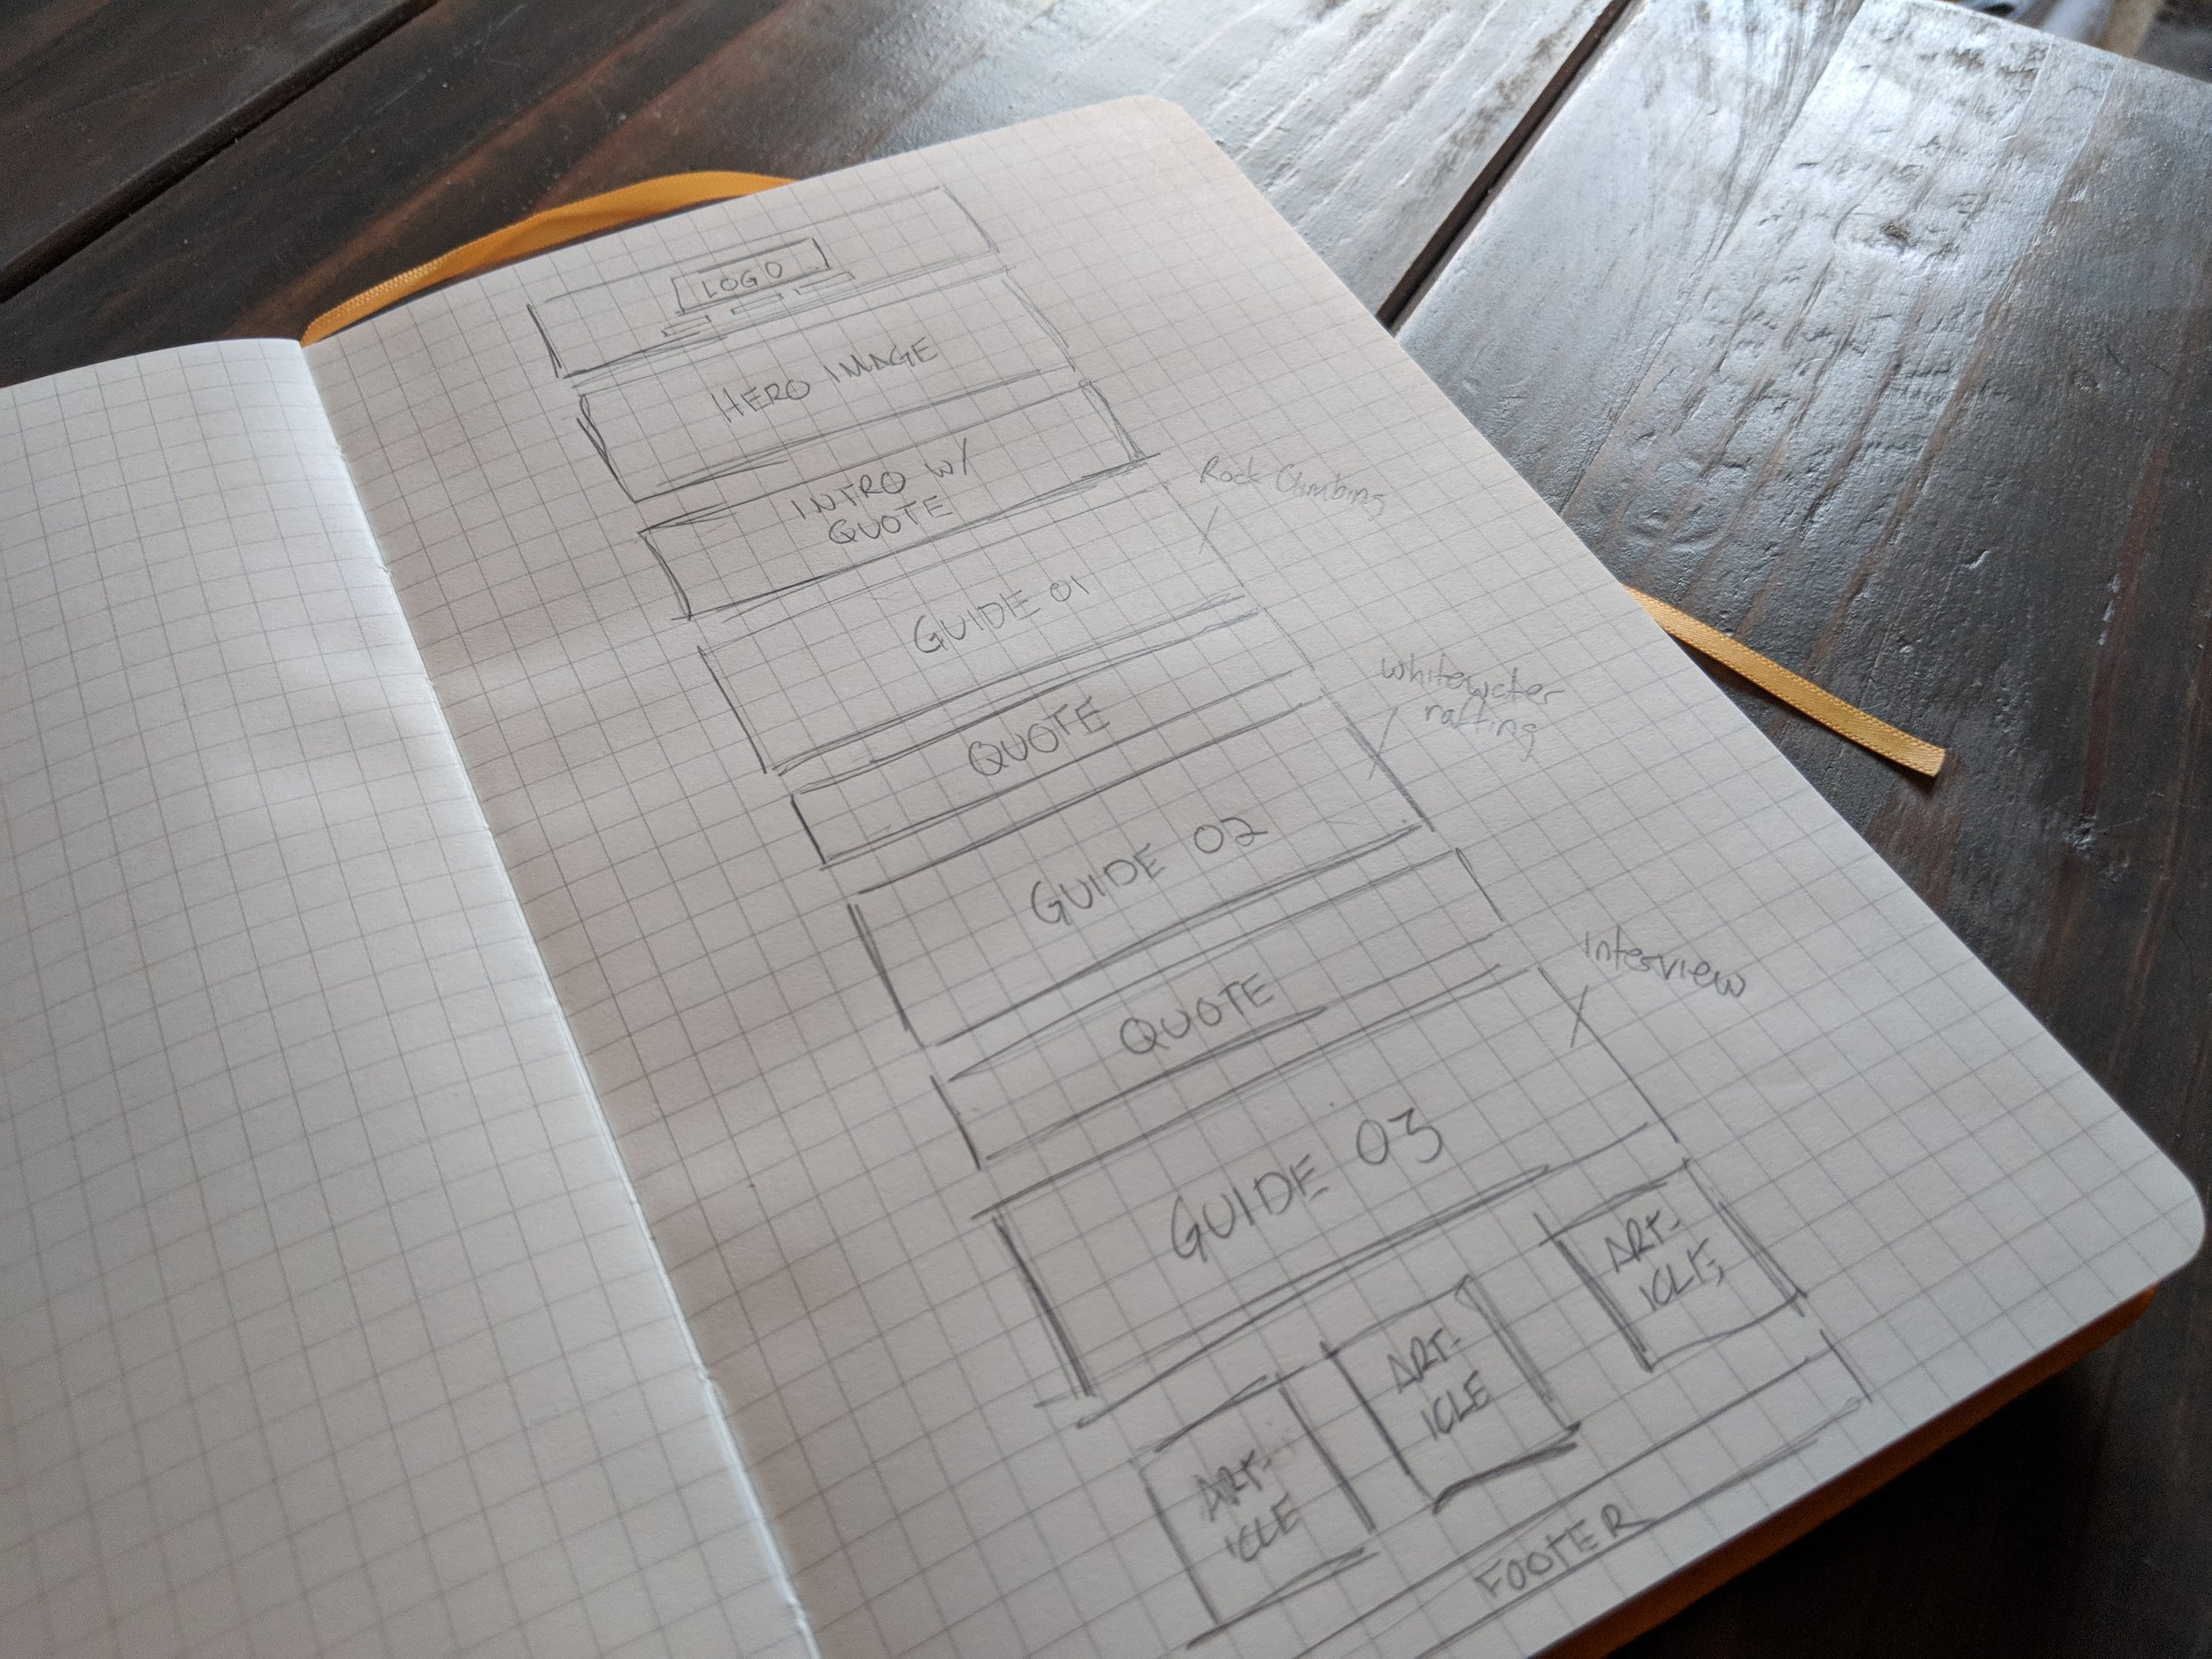 LOGO
HERO IMAGE
INTRO W/
QUOTE
Rock Climbing
GUIDE 01
QUOTE
whitewater
rafting
GUIDE 02
QUOTE
interview
GUIDE 03
ART-
ICLE
ART-
ICLE
ART-
ICLE
FOOTER